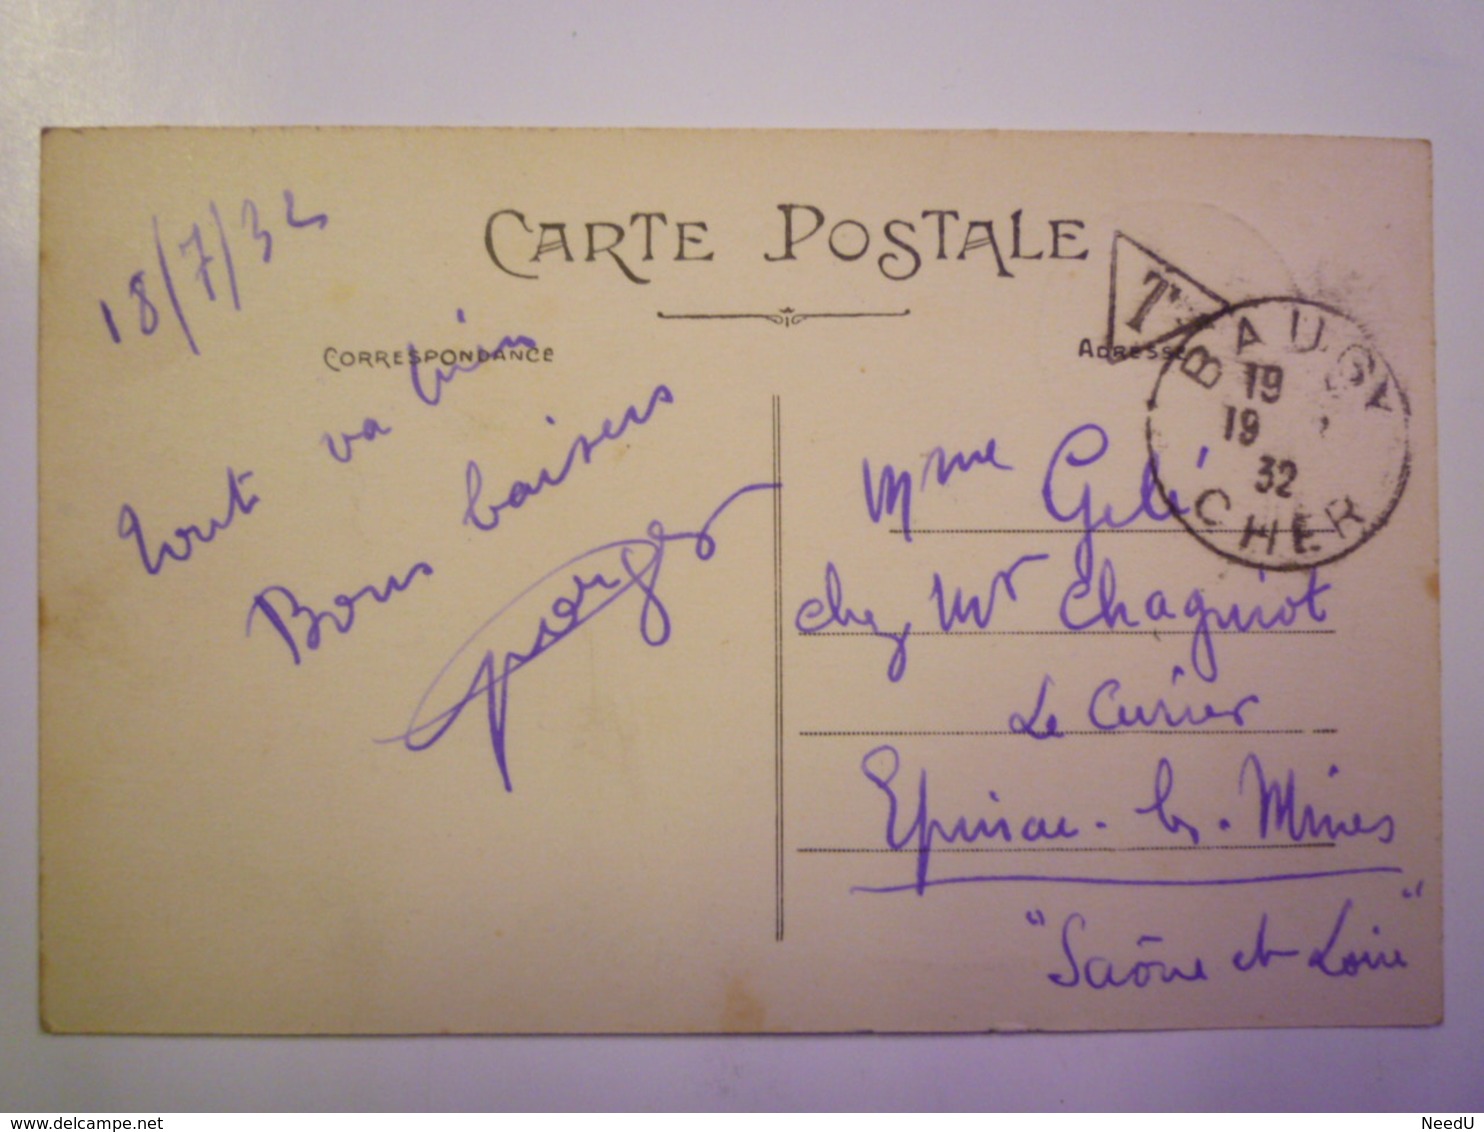 CARTE POSTALE
18/7/32
CORRESPONDANCE
Tout va bien
Bons baisers
Georges
ADRESSE
T
BAUGY
19
19
32
CHER
Mme Gelé
chez Mr Chaguiot
Le Curier
Epinac-les-Mines
"Saône et Loire"
www.delcampe.net
NeedU